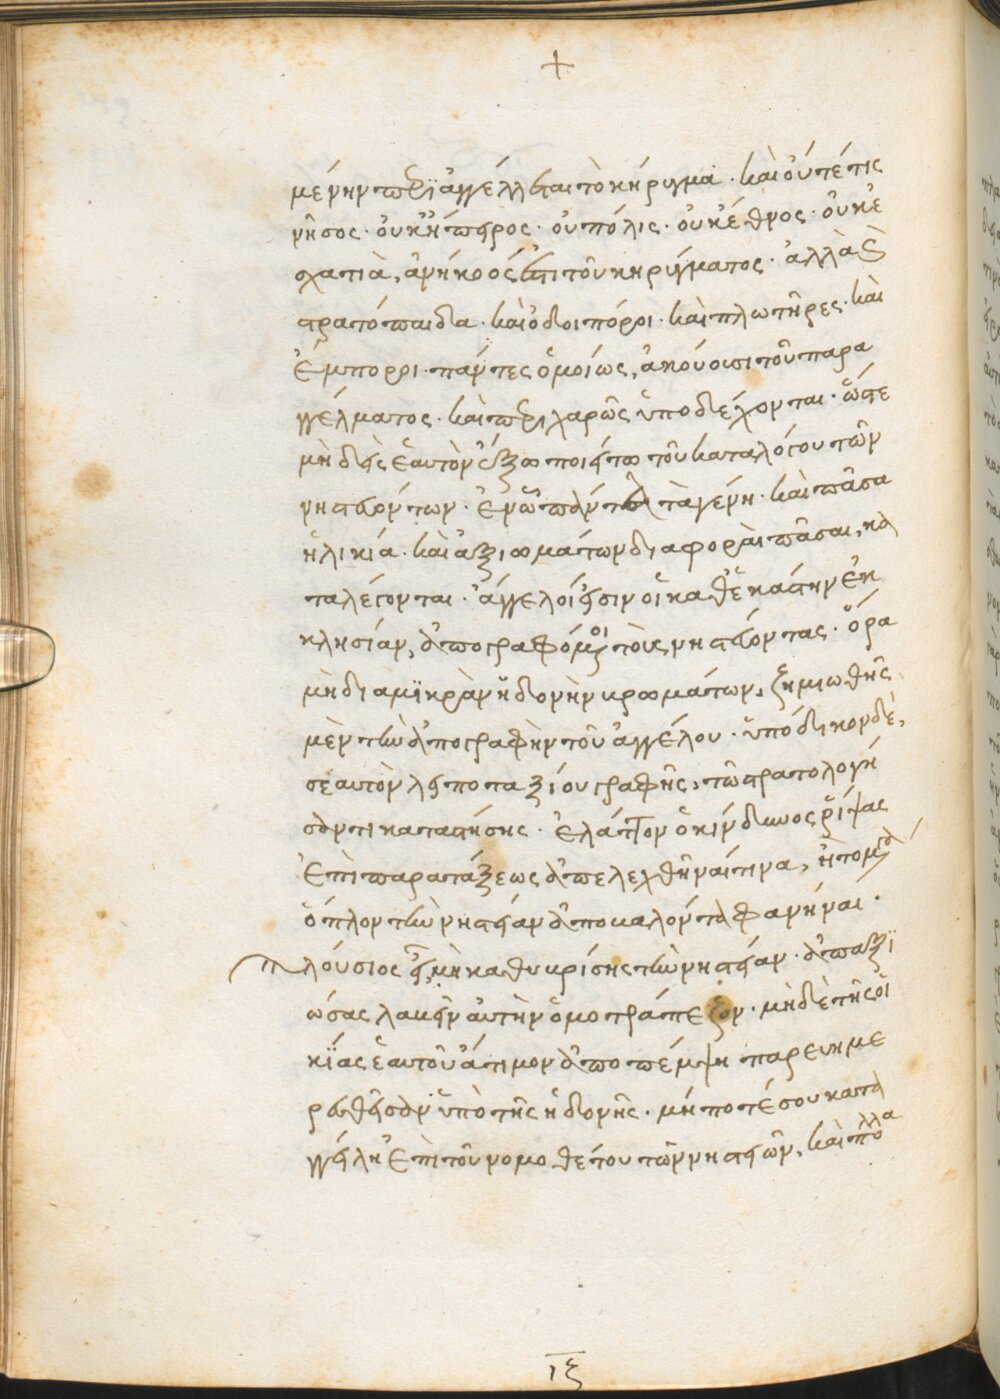 μένην περϊαγγέλλεται τὸ κήρυγμα · καὶ οὔτέ τις
νῆσος · οὐκ ἤπειρος · οὐ πόλις · οὐκ ἔθνος · οὐκ ἐ
σχατιὰ, ἀνήκοός ἐστι τοῦ κηρύγματος · ἀλλὰ καὶ
στρατόπαιδα · καὶ ὁδοιπόροι · καὶ πλωτῆρες · καὶ
ἔμποροι · πάντες ὁμοίως, ἀκούουσι τοῦ παρα
γγέλματος · καὶ περιχαρῶς ὑποδέχονται · ὥστε
μὴδεὶς ἑαυτὸν ἔξω ποιείτω τοῦ καταλόγου τῶν
νηστευόντων · ἐν ᾧ πάντα τὰ γένη · καὶ πᾶσα
ἡλικία · καὶ ἀξιωμάτων διαφοραὶ πᾶσαι, κα
ταλέγονται · ἄγγελοί εἰσιν οἱ καθ' ἑκάστην ἐκ
κλησίαν, ἀπογραφόμενοι τοὺς νηστεύοντας · ὅρα
μὴ διὰ μϊκρὰν ἡδονὴν βρωμάτων, ζημιωθῆς
μὲν τὴν ἀπογραφὴν τοῦ ἀγγέλου · ὑπόδικον δὲ,
σεαυτὸν λειποταξίου γραφῆς, τῶ στρατολογή
σαντι καταστήσης · ἐλάττον ὁ κίνδυνος ῥίψας
ἐπὶ παρατάξεως ἀπελεχθῆναί τινα, ἢ τὸ μέγα
ὅπλον τὴν νηστείαν ἀποβαλόντα φανῆναι ·
πλούσιος εἶ, μὴ καθυβρίσης τὴν νηστείαν · ἀπαξϊ
ώσας λαβεῖν αὐτὴν ὁμοτράπεζον · μὴδὲ τῆς οἰ
κΐας ἑαυτοῦ ἄτιμον ἀποπέμψη παρευημε
ρηθεῖσαν ὑπὸ τῆς ἡδονῆς · μήποτέ σου κατα
γγείλη ἐπὶ τοῦ νομοθέτου τῶν νηστειῶν, καὶ πολλα
ιξ